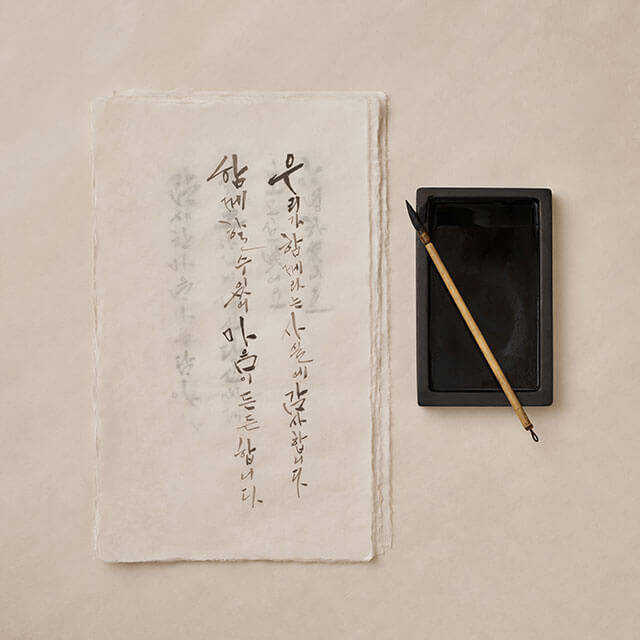 우리가 함께라는 사실에 감사합니다
함께할 수 있어 마음이 든든합니다